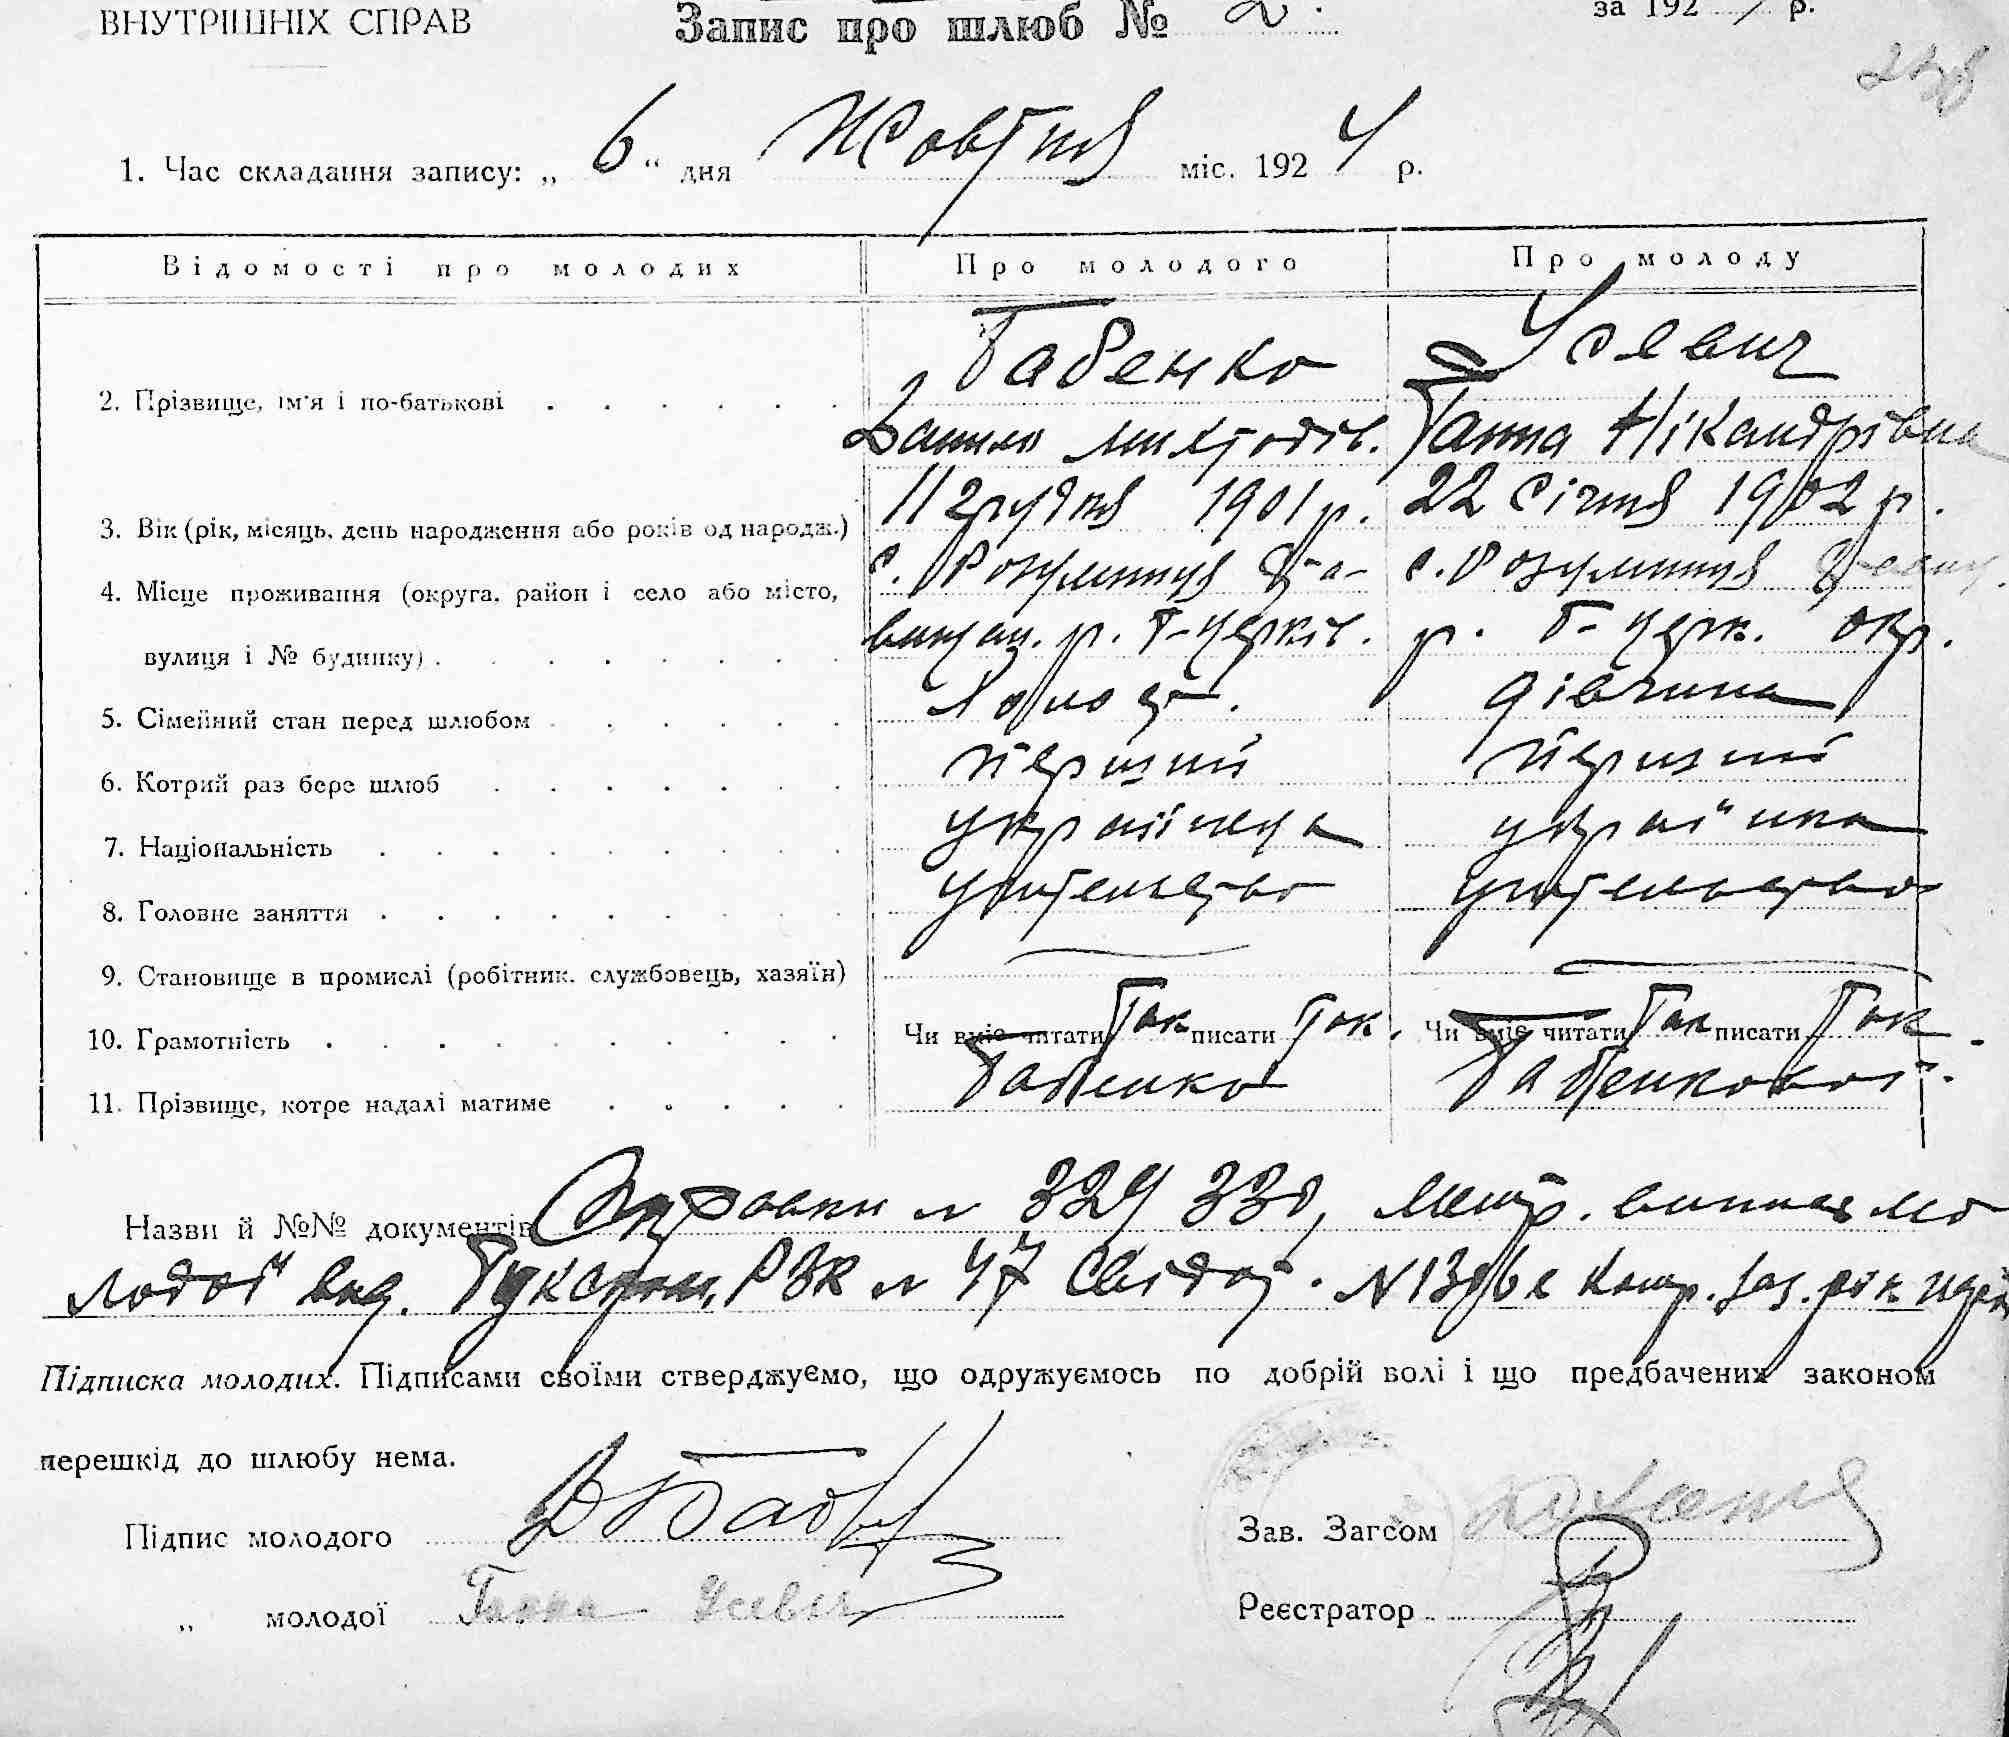 ВНУТРІШНІХ СПРАВ
Запис про шлюб № 2. за 1924 р.
1. Час складання запису: „ 6 “ дня Жовтня міс. 1924 р.
Відомості про молодих Про молодого Про молоду
Бабенко Усевич
2. Прізвище, ім'я і по-батькові
Данило Ганна Нікандрівна
3. Вік (рік, місяць, день народження або років од народж.) 11 грудня 1901 р. 22 Січня 1902 р.
4. Місце проживання (округа, район і село або місто, с. Розумниця Ста- с. Розумниця
вулиця і № будинку) р. Б-церків. р. Б-церк. окр.
5. Сімейний стан перед шлюбом дівчина
6. Котрий раз бере шлюб перший перший
7. Національність українець українка
8. Головне заняття учительство учительство
9. Становище в промислі (робітник, службовець, хазяїн)
10. Грамотність Чи вміє читати Так писати Так. Чи вміє читати Так писати Так.
11. Прізвище, котре надалі матиме Бабенко Бабенкової.
Назви й №№ документів № 329 330, метр. виписка мо
лодої вид. РВК № 47 Свідот.
Підписка молодих. Підписами своїми стверджуємо, що одружуємось по добрій волі і що предбачених законом
перешкід до шлюбу нема.
Підпис молодого Зав. Загсом
„ молодої Ганна Усевич Реєстратор